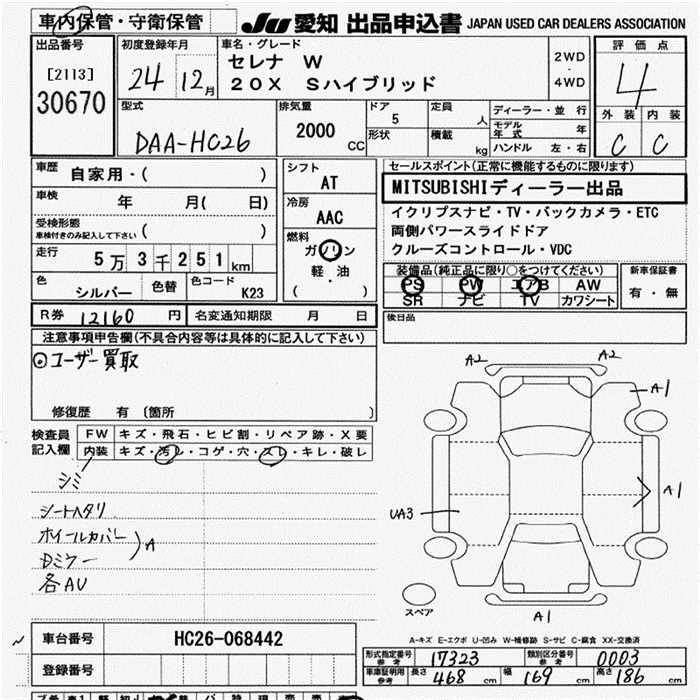 車内保管・守衛保管
JU 愛知 出品申込書 JAPAN USED CAR DEALERS ASSOCIATION
出品番号
[2113]
30670
初度登録年月
24 12月
車名・グレード
セレナ W
20X Sハイブリッド
2WD
・
4WD
評価点
4
外装 内装
C C
型式
DAA-HC26
排気量
2000
CC
ドア
5
形状
定員
人
積載
kg
ディーラー・並行
モデル年式 年
ハンドル 左・右
車歴
自家用・( )
車検
年 月( 日)
受検形態
車検付きのみ記入して下さい ( )
走行
5万3千251km
色
シルバー
色替
色コード
K23
シフト
AT
冷房
AAC
燃料
ガソリン
軽・油
( )
セールスポイント(正常に機能するものに限ります)
MITSUBISHIディーラー出品
イクリプスナビ・TV・バックカメラ・ETC
両側パワースライドドア
クルーズコントロール・VDC
装備品(純正品に限り○をつけてください)
PS PW エアB AW
SR ナビ TV カワシート
新車保証書
有・無
後日品
R券 12160 円
名変通知期限 月 日
注意事項申告欄(不具合内容等は具体的に記入して下さい)
◎ユーザー買取
修復歴 有 〔箇所 〕
検査員
記入欄
FW キズ・飛石・ヒビ割・リペア跡・X要
内装 キズ・汚レ・コゲ・穴・スレ・キレ・破レ
シミ
シートヘタリ
ホイールカバー
Dミラー
A
各AU
A2 A2
A1
A1
UA3
A1
スペア
A-キズ E-エクボ U-凹み W-補修跡 S-サビ C-腐食 XX-交換済
車台番号 HC26-068442
登録番号
形式指定番号
参考
17323
類別区分番号
参考
0003
車庫証明用
参考
長さ 468 cm 幅 169 cm 高さ 186 cm